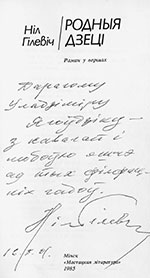 Ніл
Гілевіч
РОДНЫЯ
ДЗЕЦІ
Раман у вершах
Дарагому
Уладзіміру
Ягоўдзіку —
з павагай і
любоўю яшчэ
ад тых
гадоў
Ніл Гілевіч
Мінск
«Мастацкая літаратура»
1985